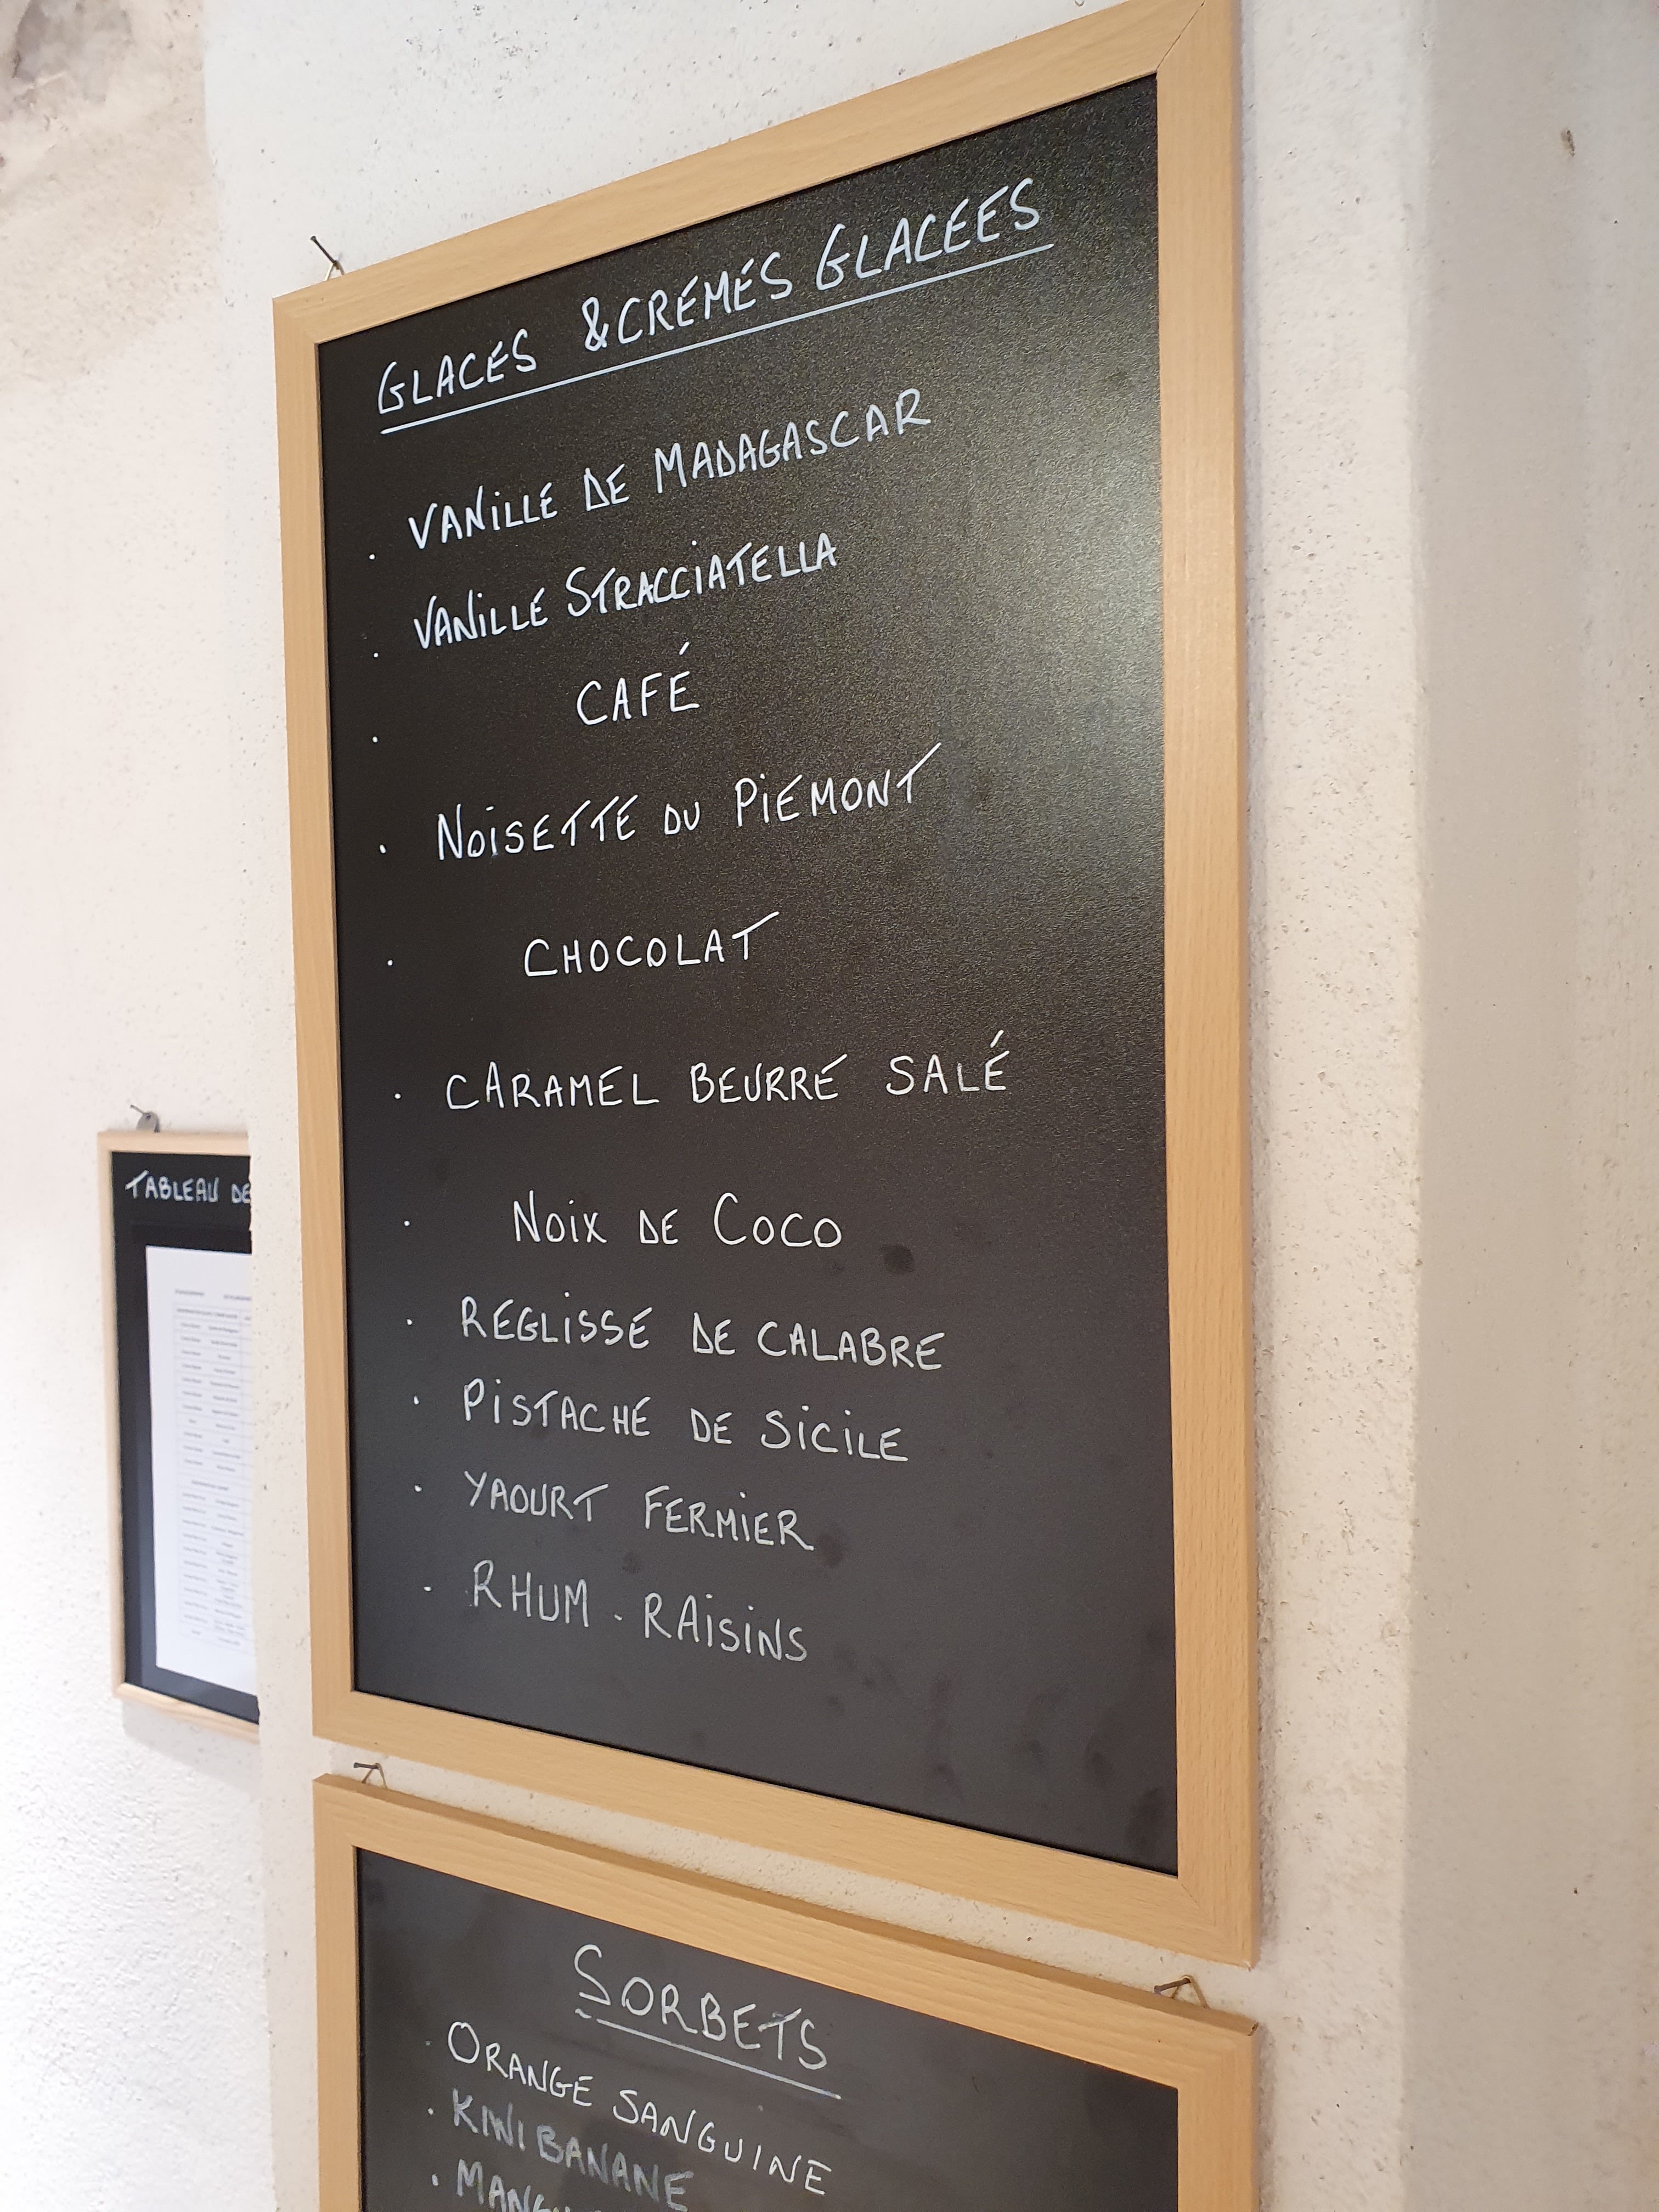 GLACES & CRÉMES GLACÉES
. VANILLE DE MADAGASCAR
. VANILLE STRACCIATELLA
. CAFÉ
. NOISETTE DU PIÉMONT
. CHOCOLAT
. CARAMEL BEURRE SALÉ
. NOIX DE COCO
. REGLISSE DE CALABRE
. PISTACHE DE SICILE
. YAOURT FERMIER
. RHUM - RAISINS
SORBETS
. ORANGE SANGUINE
. KIWI BANANE
TABLEAU DE